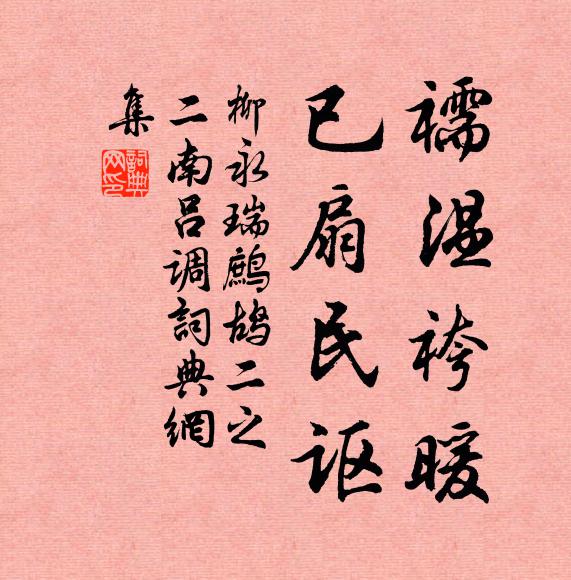 襦温袴暖
已扇民讴
柳永瑞鹧鸪二之
二南吕调詞典網
集
詞典網印